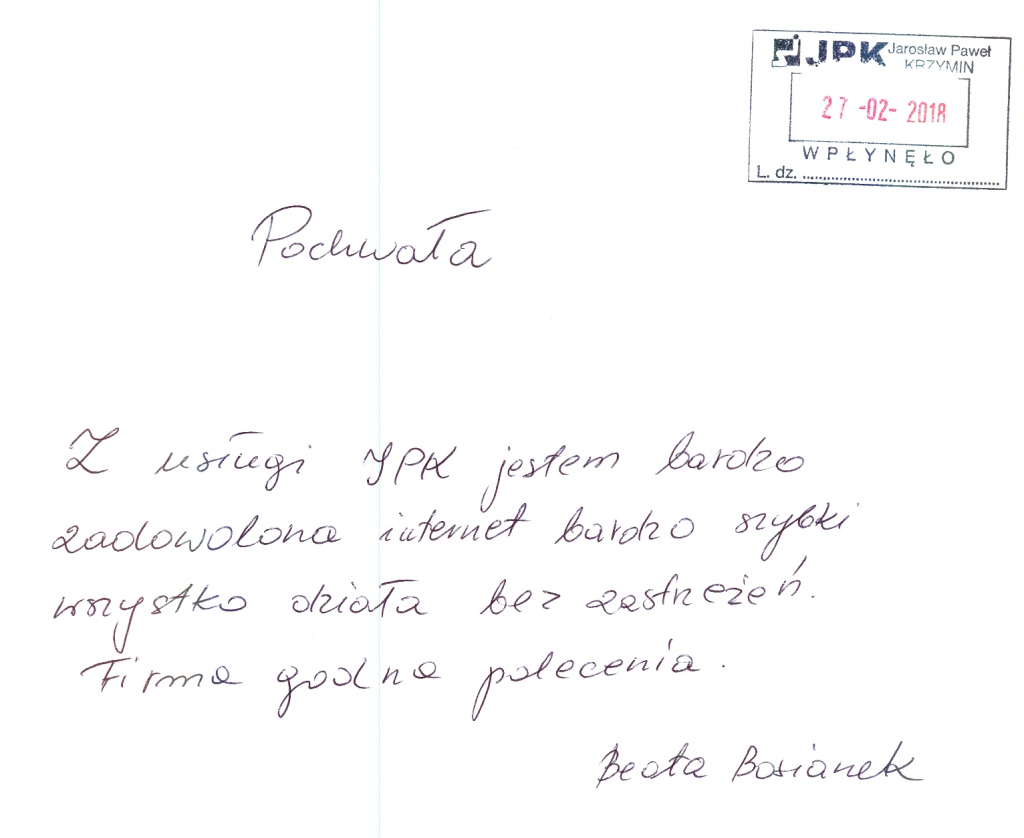 JPK Jarosław Paweł
KRZYMIN
27 -02- 2018
WPŁYNĘŁO
L. dz. ................................................
Pochwała
Z usługi JPK jestem bardzo
zadowolona internet bardzo szybki
wszystko działa bez zastrzeżeń.
Firma godna polecenia.
Beata Bosianek